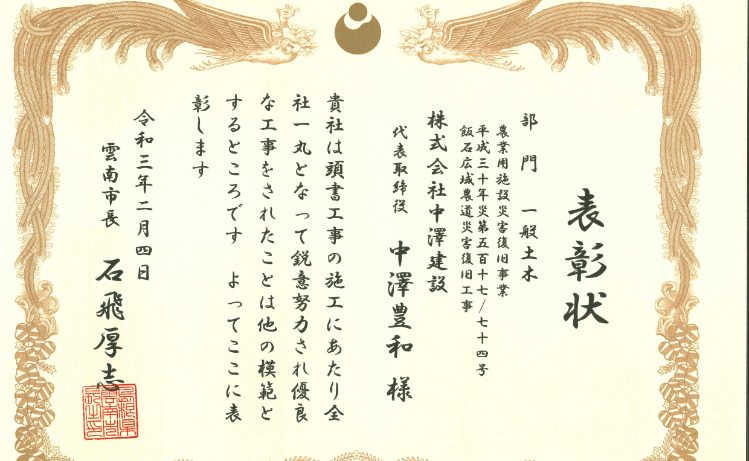 表彰状
部門 一般土木
農業用施設災害復旧事業
平成三十年災第五百十七/七十四号
飯石広域農道災害復旧工事
株式会社中澤建設
代表取締役 中澤豊和様
貴社は頭書工事の施工にあたり全
社一丸となって鋭意努力され優良
な工事をされたことは他の模範と
するところです よってここに表
彰します
令和三年二月四日
雲南市長 石飛厚志
島根県
雲南市
長之印